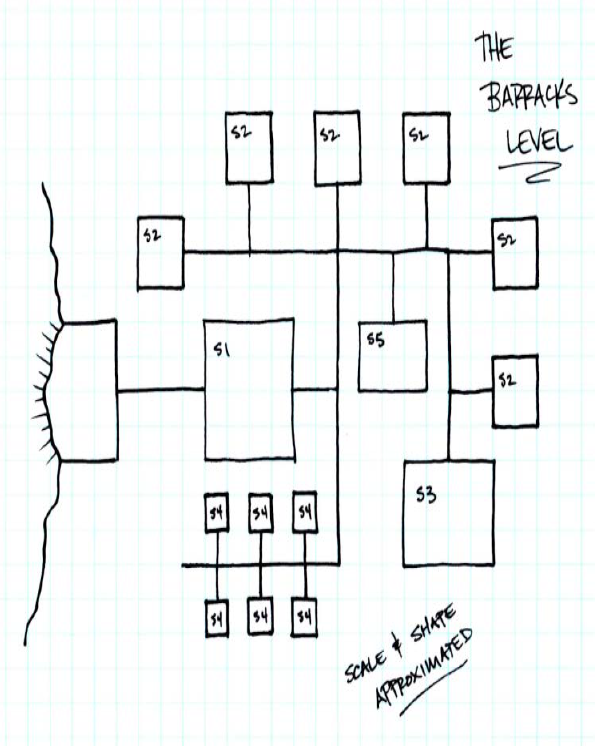 THE
BARRACKS
LEVEL
S2 S2 S2
S2 S2
S1 S5
S2
S3
S4 S4 S4
S4 S4 S4
SCALE & SHAPE
APPROXIMATED